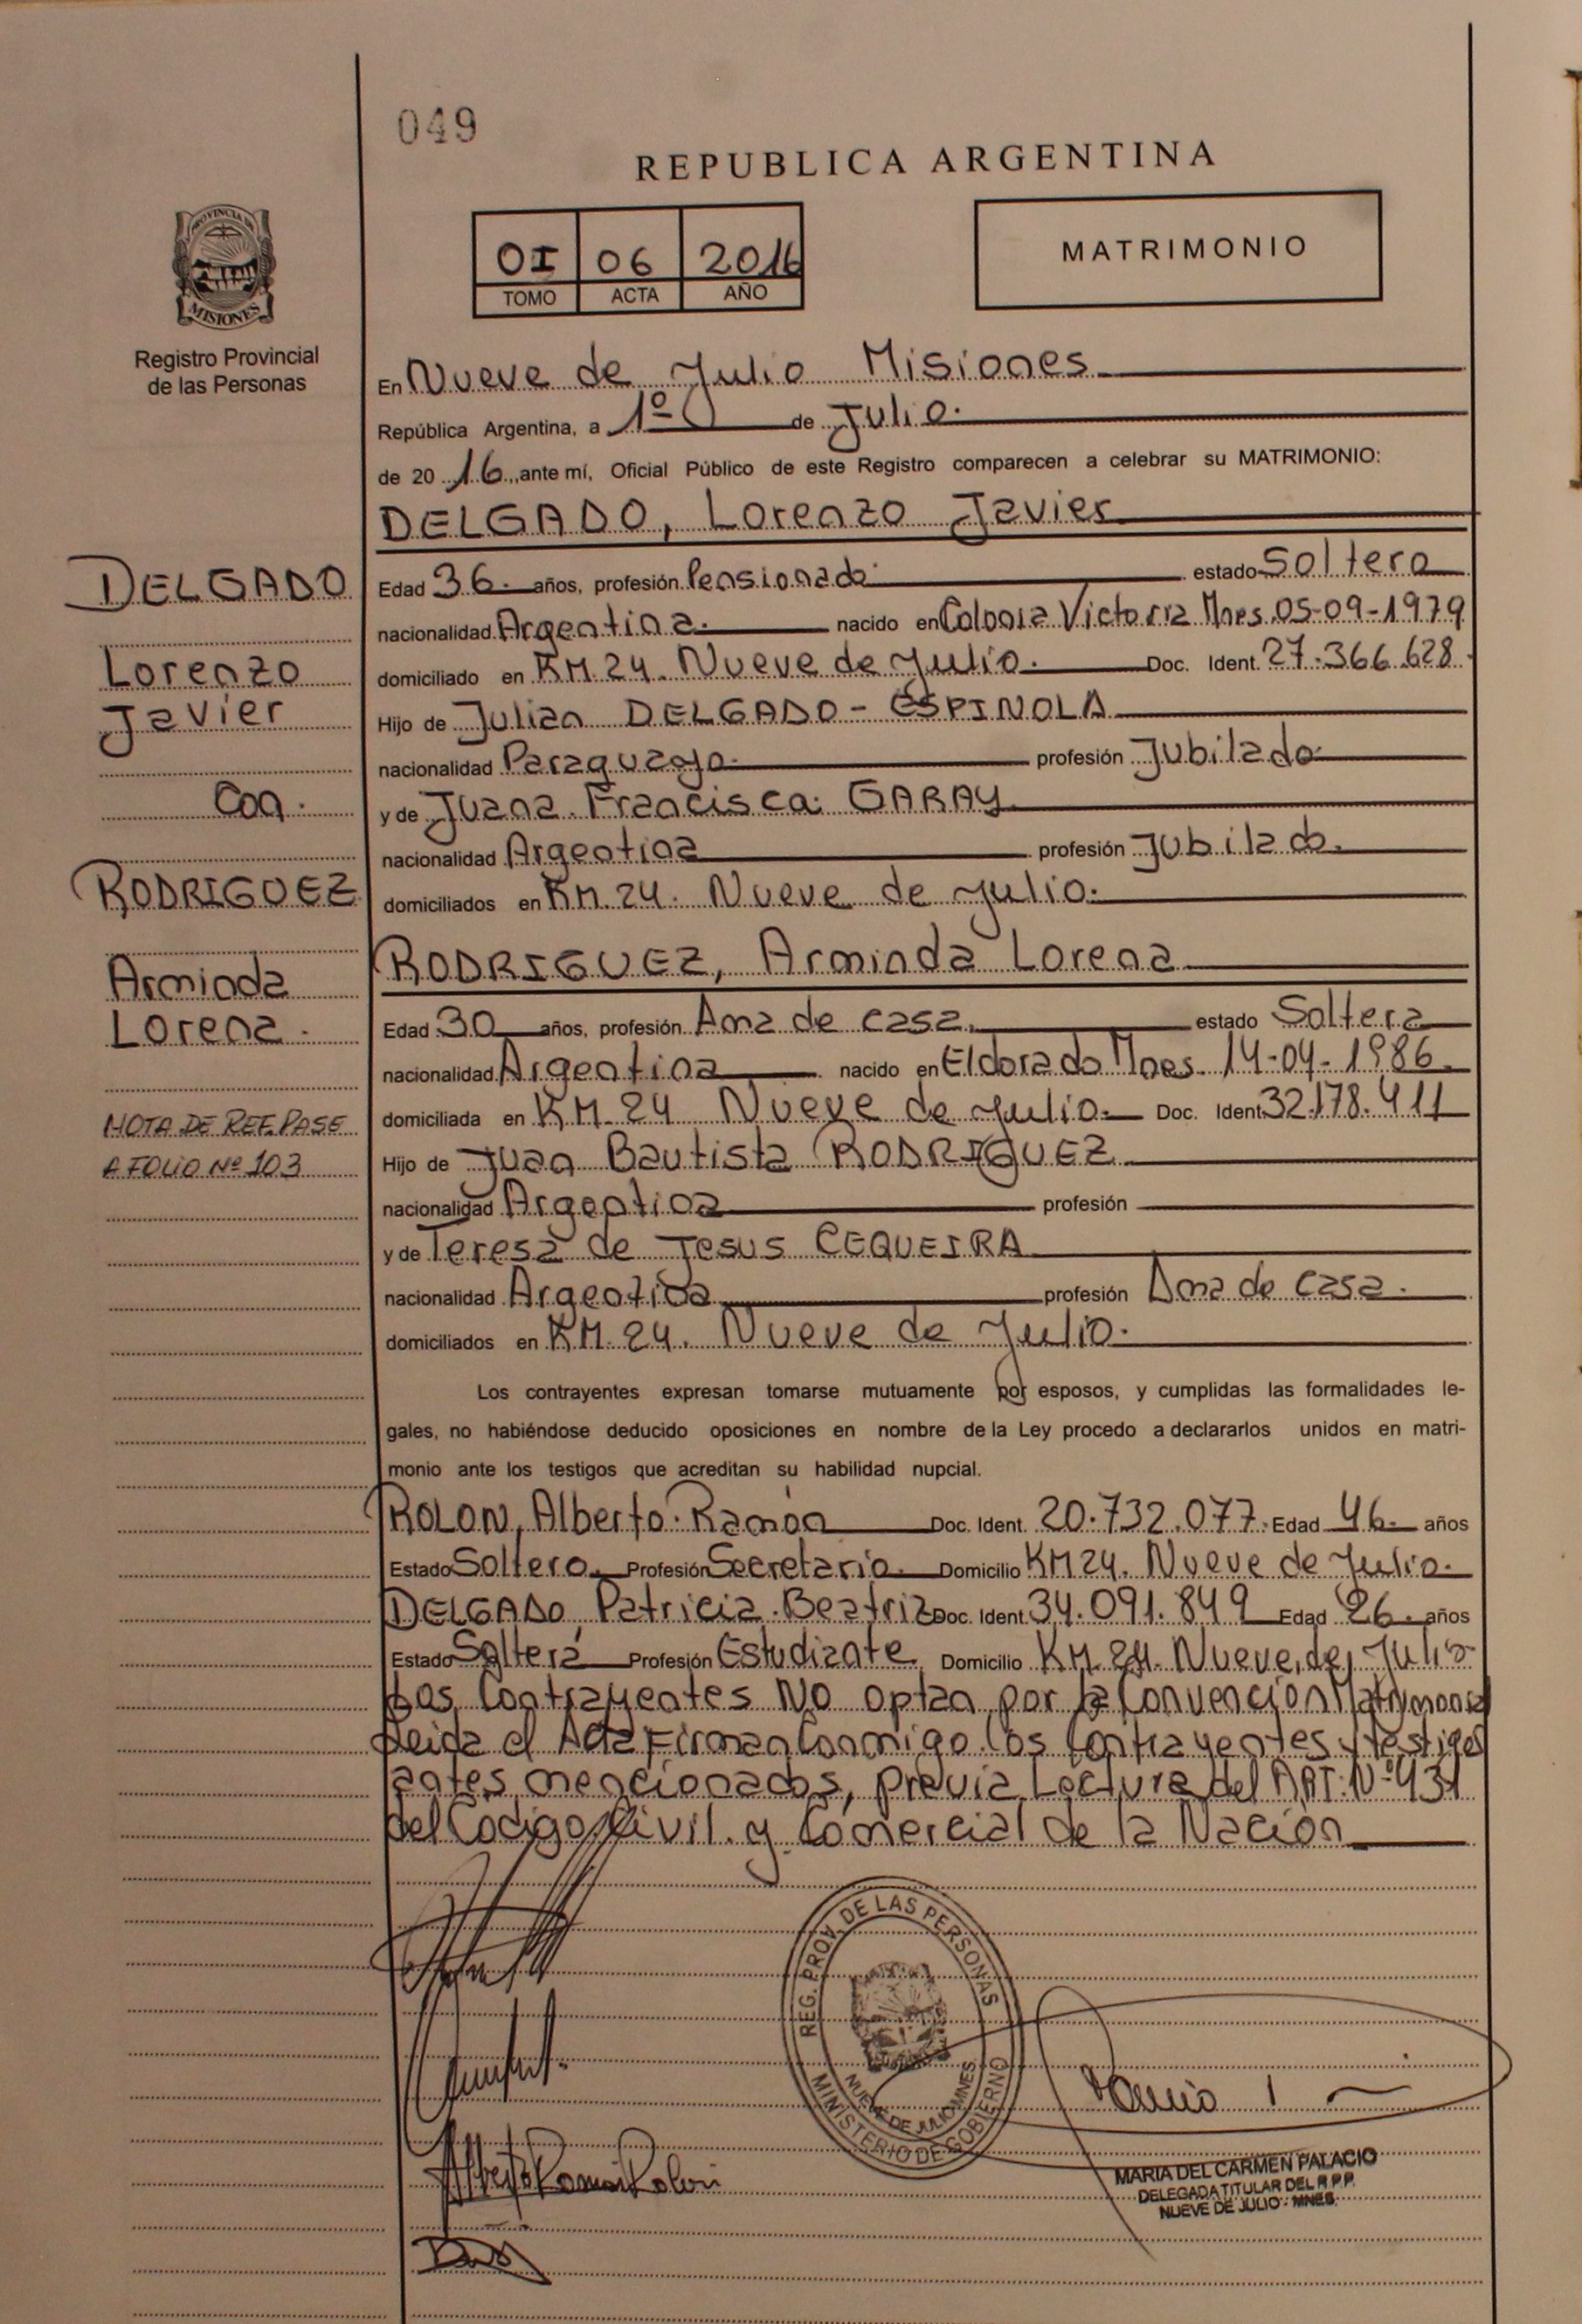 049
REPUBLICA ARGENTINA
PROVINCIA DE
MISIONES
Registro Provincial
de las Personas
OI 06 2016
TOMO ACTA AÑO
MATRIMONIO
En Nueve de Julio Misiones
República Argentina, a 1º de Julio.
de 20 16, ante mí, Oficial Público de este Registro comparecen a celebrar su MATRIMONIO:
DELGADO, Lorenzo Javier
Edad 36. años, profesión Pensionado estado Soltero
nacionalidad Argentina. nacido en Colonia Victoria Mnes. 05-09-1979
domiciliado en KM. 24. Nueve de Julio. Doc. Ident. 27.366.628.
Hijo de Julian DELGADO - ESPINOLA
nacionalidad Paraguayo. profesión Jubilado
y de Juana. Francisca: GARAY
nacionalidad Argentina profesión Jubilado.
domiciliados en KM. 24. Nueve de Julio.
RODRIGUEZ, Arminda Lorena
Edad 30 años, profesión Ama de casa. estado Soltera
nacionalidad Argentina nacido en Eldorado Mnes. 14-04-1986.
domiciliada en KM. 24 Nueve de Julio. Doc. Ident 32.178.411
Hijo de Juan Bautista RODRIGUEZ
nacionalidad Argentina profesión
y de Teresa de Jesus CEQUEIRA
nacionalidad Argentina profesión Ama de casa.
domiciliados en KM. 24. Nueve de Julio.
DELGADO
Lorenzo
Javier
Con.
RODRIGUEZ
Arminda
Lorena.
NOTA DE REF. PASE
A FOLIO Nº 103
Los contrayentes expresan tomarse mutuamente por esposos, y cumplidas las formalidades le-
gales, no habiéndose deducido oposiciones en nombre de la Ley procedo a declararlos unidos en matri-
monio ante los testigos que acreditan su habilidad nupcial.
ROLON, Alberto. Ramón Doc. Ident. 20.732.077. Edad 46. años
Estado Soltero. Profesión Secretario. Domicilio KM 24. Nueve de Julio.
DELGADO, Patricia. Beatriz Doc. Ident. 34.091.849 Edad 26. años
Estado Soltera Profesión Estudiante. Domicilio KM. 24. Nueve, de, Julio
Los Contrayentes NO optan por la Convención Matrimonial
Leida el Acta Firman Conmigo los Contrayentes y testigos
antes mencionados, previa Lectura del ART: Nº 431
del Codigo Civil. y Comercial de la Nación
REG. PROV. DE LAS PERSONAS
NUEVE DE JULIO MNES
MINISTERIO DE GOBIERNO
Alberto Ramon Rolon
MARIA DEL CARMEN PALACIO
DELEGADA TITULAR DEL R.P.P.
NUEVE DE JULIO - MNES.